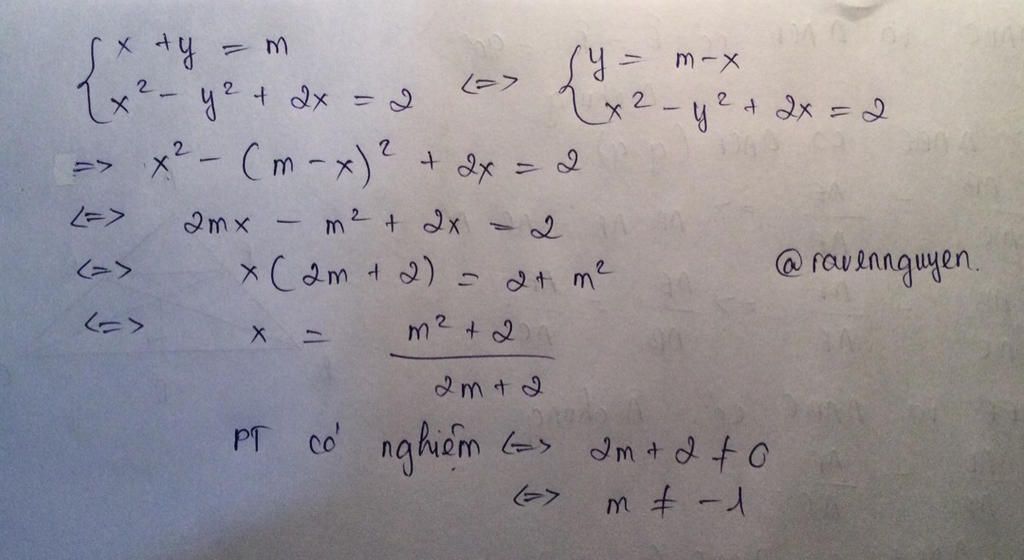 { x + y = m
x² - y² + 2x = 2 <=> { y = m - x
x² - y² + 2x = 2
=> x² - (m - x)² + 2x = 2
<=> 2mx - m² + 2x = 2
<=> x(2m + 2) = 2 + m²
@ravennguyen.
<=> x = m² + 2 / 2m + 2
PT có nghiệm <=> 2m + 2 ≠ 0
<=> m ≠ -1